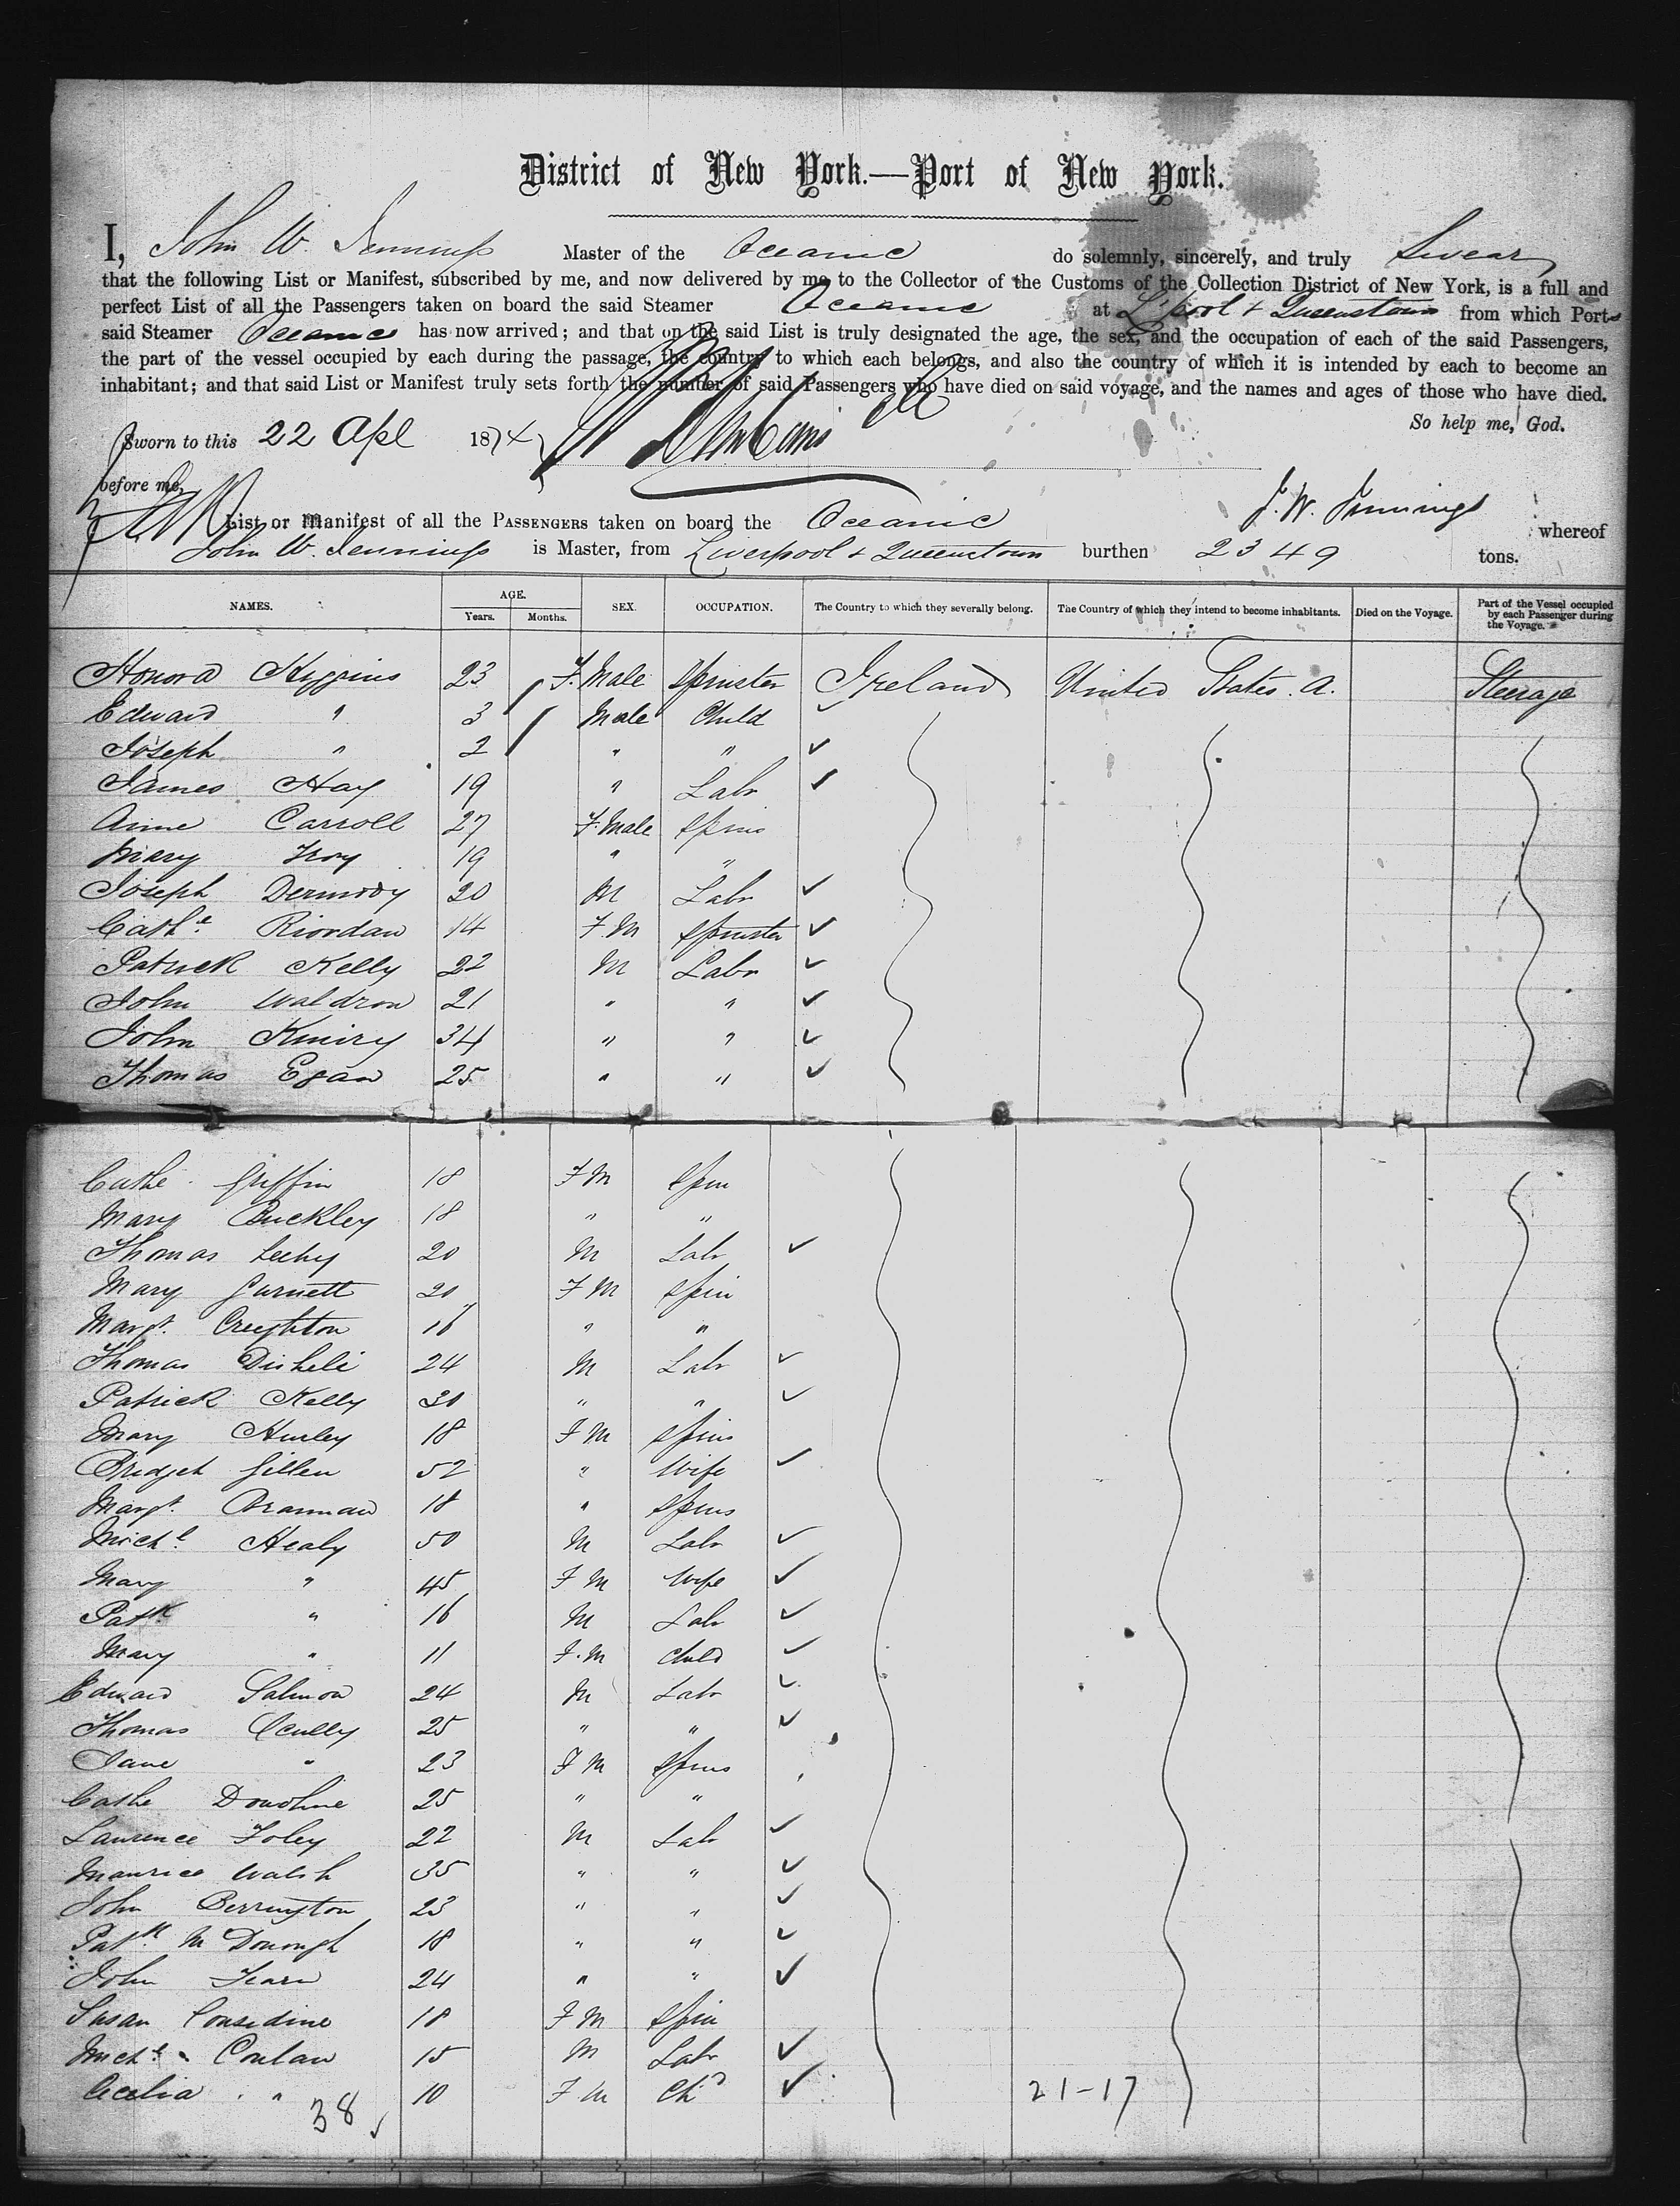 District of New York.—Port of New York.
I, John W. Jennings Master of the Oceanic do solemnly, sincerely, and truly Swear
that the following List or Manifest, subscribed by me, and now delivered by me to the Collector of the Customs of the Collection District of New York, is a full and
perfect List of all the Passengers taken on board the said Steamer Oceanic at L'pool & Queenstown from which Ports
said Steamer Oceanic has now arrived; and that on the said List is truly designated the age, the sex, and the occupation of each of the said Passengers,
the part of the vessel occupied by each during the passage, the country to which each belongs, and also the country of which it is intended by each to become an
inhabitant; and that said List or Manifest truly sets forth the number of said Passengers who have died on said voyage, and the names and ages of those who have died.
So help me, God.
Sworn to this 22 Apl 1874
before me,
J. W. Jennings
List or Manifest of all the Passengers taken on board the Oceanic whereof
John W. Jennings is Master, from Liverpool & Queenstown burthen 2349 tons.
NAMES. AGE. Years. Months. SEX. OCCUPATION. The Country to which they severally belong. The Country of which they intend to become inhabitants. Died on the Voyage. Part of the Vessel occupied by each Passenger during the Voyage.
Honora Higgins 23 F. Male Spinster Ireland United States. A. Steerage
Edward " 3 Male Child ✓
Joseph " 2 " " ✓
James Hay 19 " Labr ✓
Anne Carroll 27 F. Male Spins
Mary Troy 19 " "
Joseph Dermody 20 M Labr ✓
Cathe Riordan 14 F M Spinster ✓
Patrick Kelly 22 M Labr ✓
John Waldron 21 " " ✓
John Kmiry 34 " " ✓
Thomas Egan 25 " " ✓
Cathe Griffin 18 F M Spin
Mary Buckley 18 " "
Thomas Leehy 20 M Labr ✓
Mary Gurnett 20 F M Spin
Margt. Creighton 16 " "
Thomas 24 M Labr ✓
Patrick Kelly 30 " " ✓
Mary Hurley 18 F M Spins
Bridget Gillen 52 " Wife ✓
Margt. 18 " Spins
Michl Healy 50 M Labr ✓
Mary " 45 F M Wife ✓
Patk " 16 M Labr ✓
Mary " 11 F. M Child ✓
Edward Salmon 24 M Labr ✓
Thomas Scully 25 " " ✓
Jane " 23 F M Spins
Cathe Donohue 25 " "
Laurence Foley 22 M Labr ✓
Maurice Walsh 35 " " ✓
John Berrington 23 " " ✓
Patk McDonough 18 " " ✓
John 24 " " ✓
Susan Considine 18 F M Spin
Michl Conlan 15 M Labr ✓
Cecelia " 10 F M Chd ✓
38 ✓
21-17